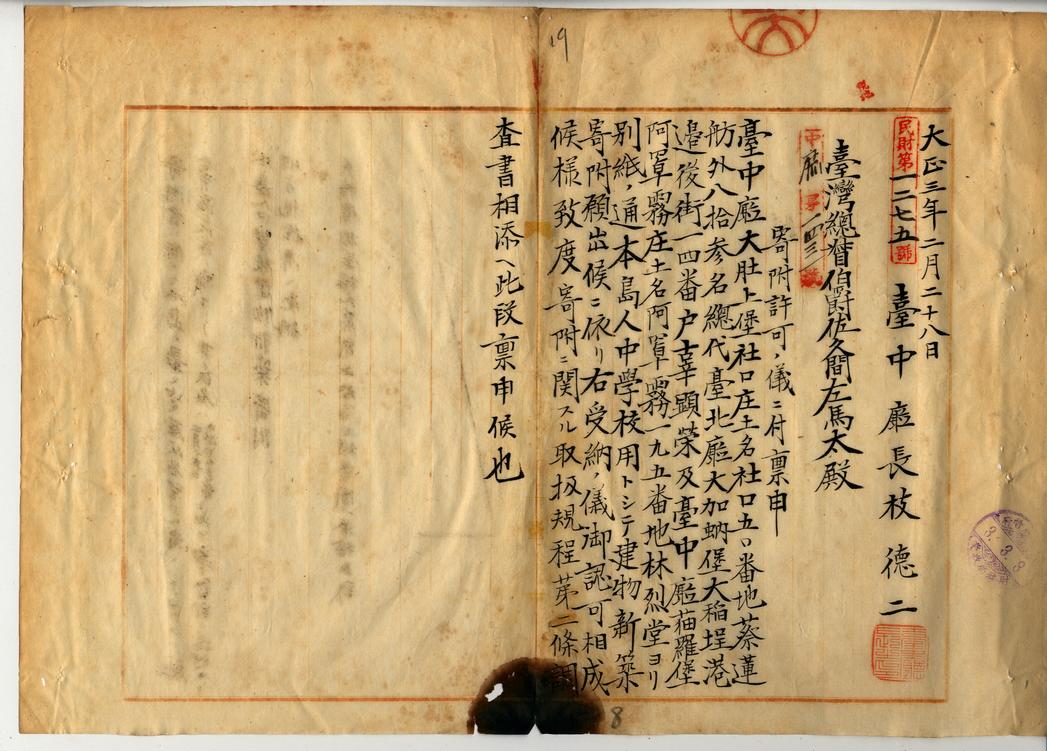 大正三年二月二十八日
民財第一二七五號
臺中廳長枝德二
臺灣總督伯爵佐久間左馬太殿
中廳 一四三 號
寄附許可ノ儀ニ付禀申
臺中廳大肚下堡社口庄土名社口五〇番地蔡蓮
舫外八拾参名總代臺北廳大加蚋堡大稲埕港
邊後街一四番户辜顕榮及臺中廳猫羅堡
阿罩霧庄土名阿罩霧一九五番地林烈堂ヨリ
別紙ノ通本島人中學校用トシテ建物新築
寄附願出候ニ依リ右受納ノ儀御認可相成
候様致度寄附ニ関スル取扱規程苐二條調
査書相添ヘ此段禀申候也
19
8
3.3.3